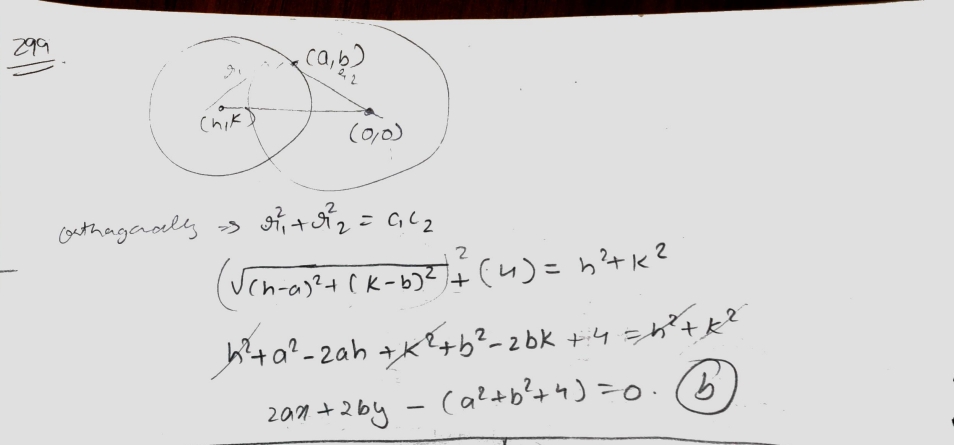 299.
(a,b)
r1 r2
(h,k)
(0,0)
orthagonally => r₁² + r₂² = c₁c₂
(√(h-a)² + (k-b)²)² + (4) = h² + k²
h² + a² - 2ah + k² + b² - 2bk + 4 = h² + k²
2ax + 2by - (a² + b² + 4) = 0. (b)